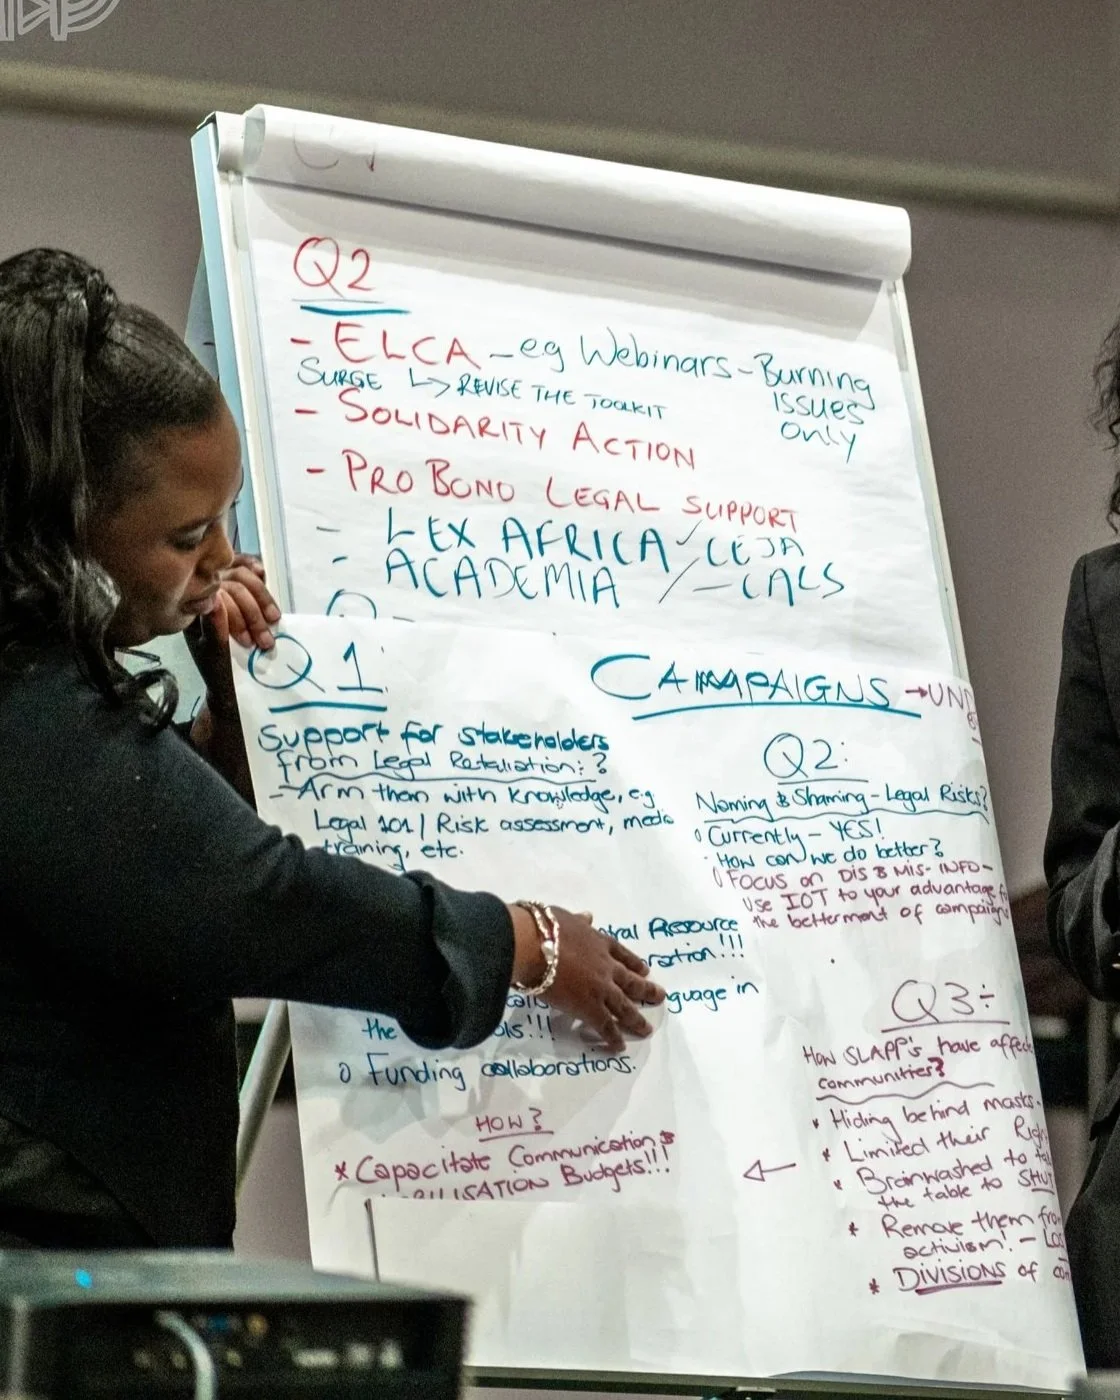 Q2
- ELCA - eg Webinars - Burning
Issues
only
SURGE ↳ REVISE THE TOOLKIT
- SOLIDARITY ACTION
- PRO BONO LEGAL SUPPORT
- LEX AFRICA / CEJA
- ACADEMIA / - CALS
Q1
Support for stakeholders
from Legal Retaliation: ?
- Arm them with knowledge, eg
Legal 101 / Risk assessment, media
training, etc.
Resource
!!!
in
the
!!!
o Funding collaborations.
HOW?
* Capacitate Communication &
Budgets!!!
CAMPAIGNS →
Q2:
Naming & Shaming - Legal Risks?
o Currently - YES!
· How can we do better?
o FOCUS on DIS & MIS-INFO -
USE IOT to your advantage
the betterment of campaigns
Q3:
How SLAPP's have affec
communities?
* Hiding behind masks -
* Limited their
* Brainwashed to
the table to SHUT
* Remove them fro
activism! -
* DIVISIONS of